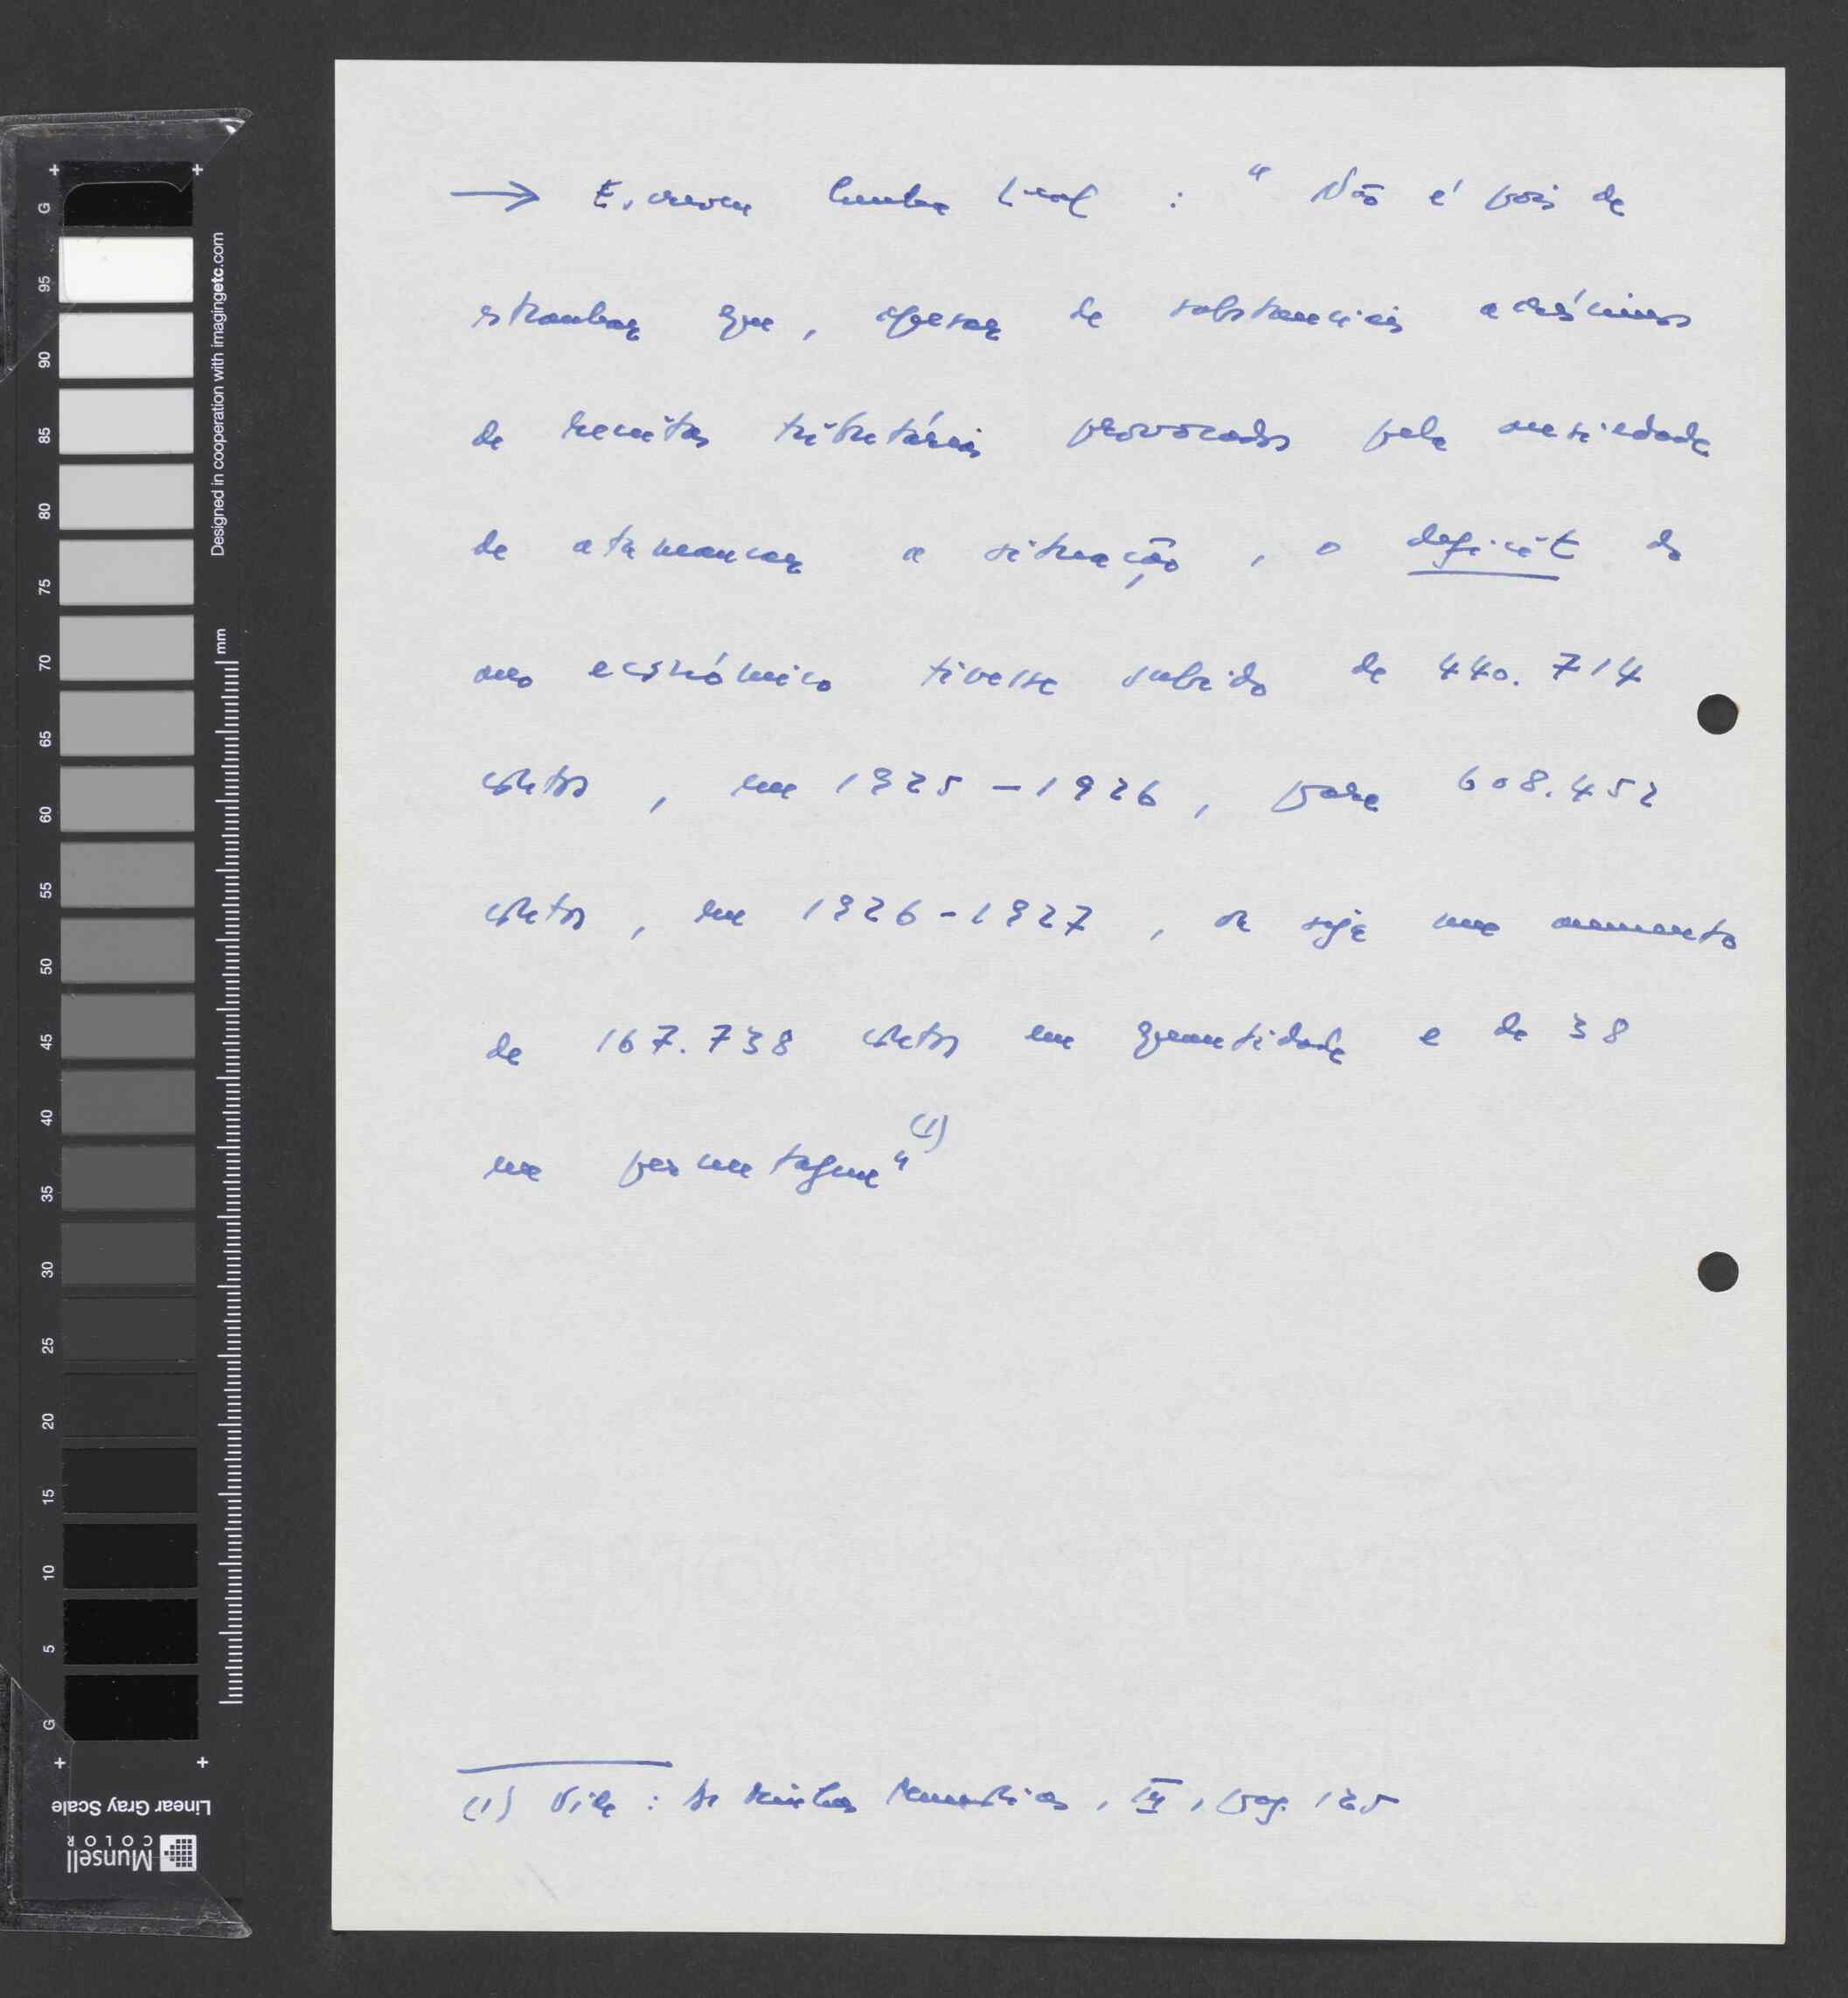 → Escreveu Cunha Leal : " Não é pois de
estranhar que, apesar de substanciais acréscimos
de receitas tributárias provocados pela ansiedade
de atamancar a situação, o deficit do
ano económico tivesse subido de 440.714
contos, em 1925-1926, para 608.452
contos, em 1926-1927, ou seja um aumento
de 167.738 contos em quantidade e de 38
em percentagem" (1)
(1) Vide: As minhas Memórias, III, pag. 125
G 95 90 85 80 75 70 65 60 55 50 45 40 35 30 25 20 15 10 5 G
Designed in cooperation with imagingetc.com
mm
Linear Gray Scale
Munsell
COLOR